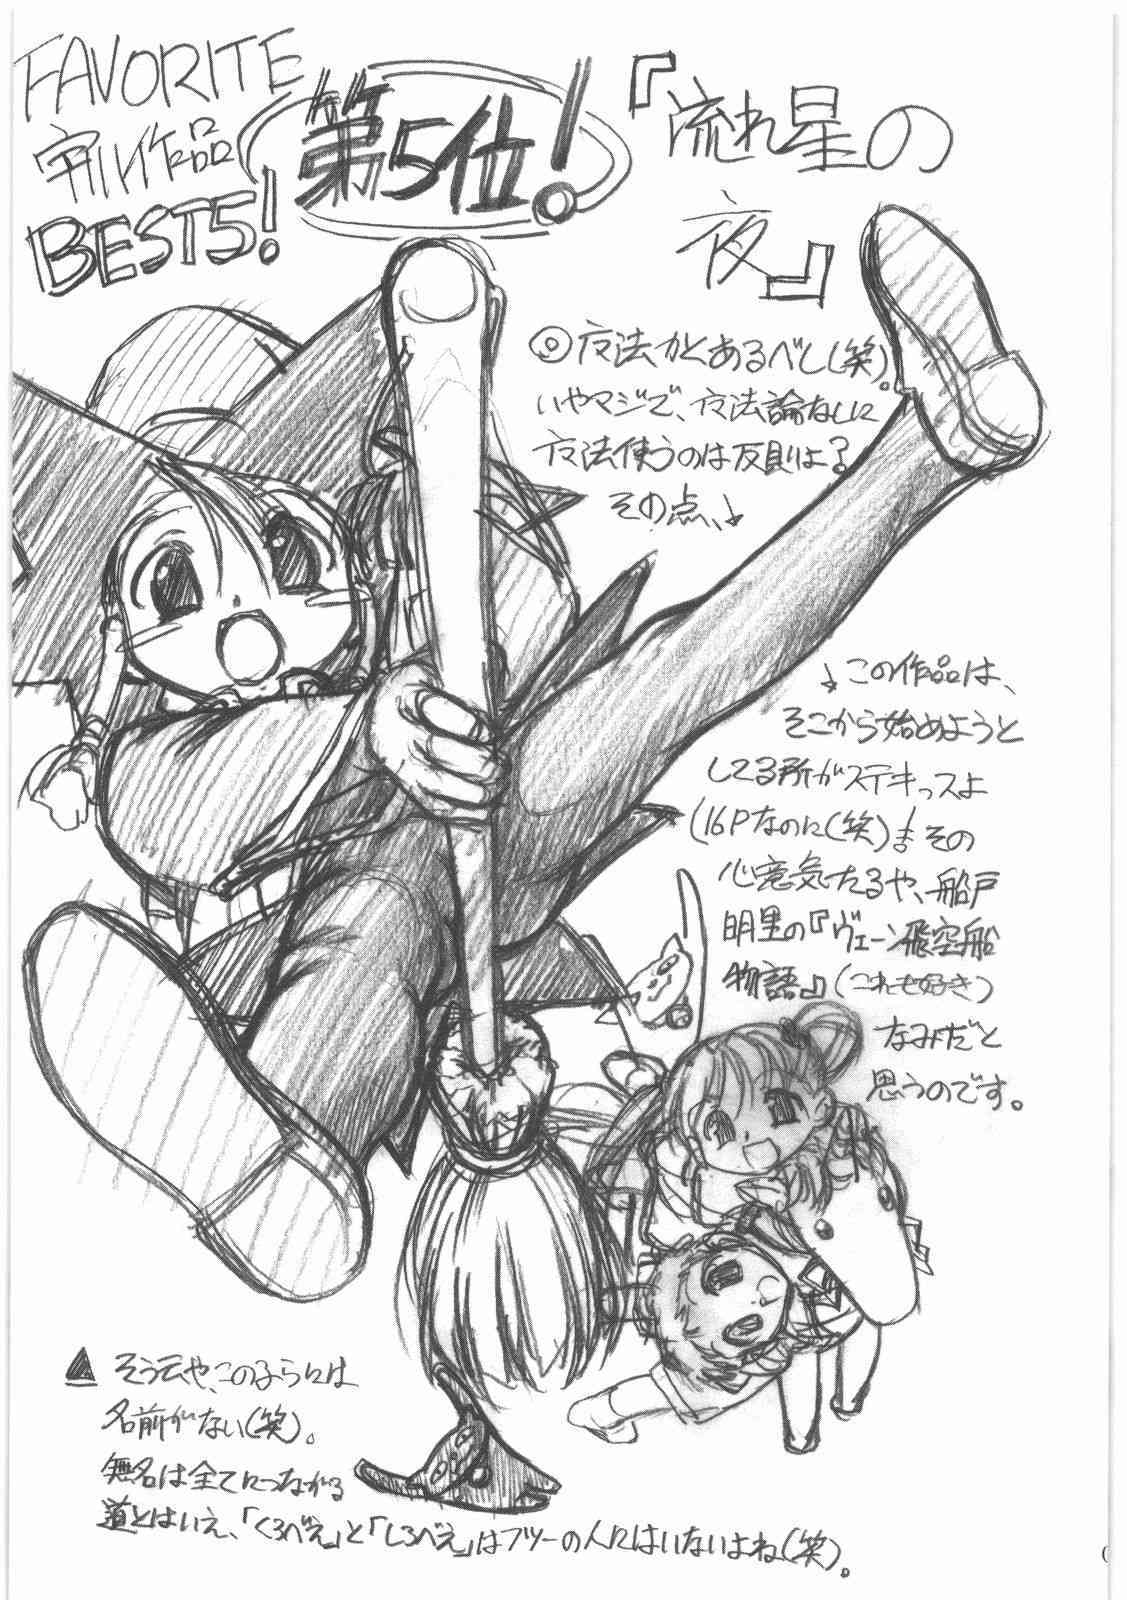 FAVORITE
宇川作品
BEST5!
第5位!
『流れ星の
夜』
◎ 方法かくあるべし(笑)。
いやマジで、方法論なしに
方法使うのは反則よ?
その点、↓
↓この作品は、
そこから始めようと
してる所がステキっスよ
(16Pなのに(笑))まその
心意気たるや、船戸
明里の『ヴェーン飛空船
物語』(これも好き)
なみだと
思うのです。
▲ そう云や、このようらには
名前がない(笑)。
無名は全てにつながる
道とはいえ、「くろべえ」と「しろべえ」はフツーの人にはいないよね(笑)。